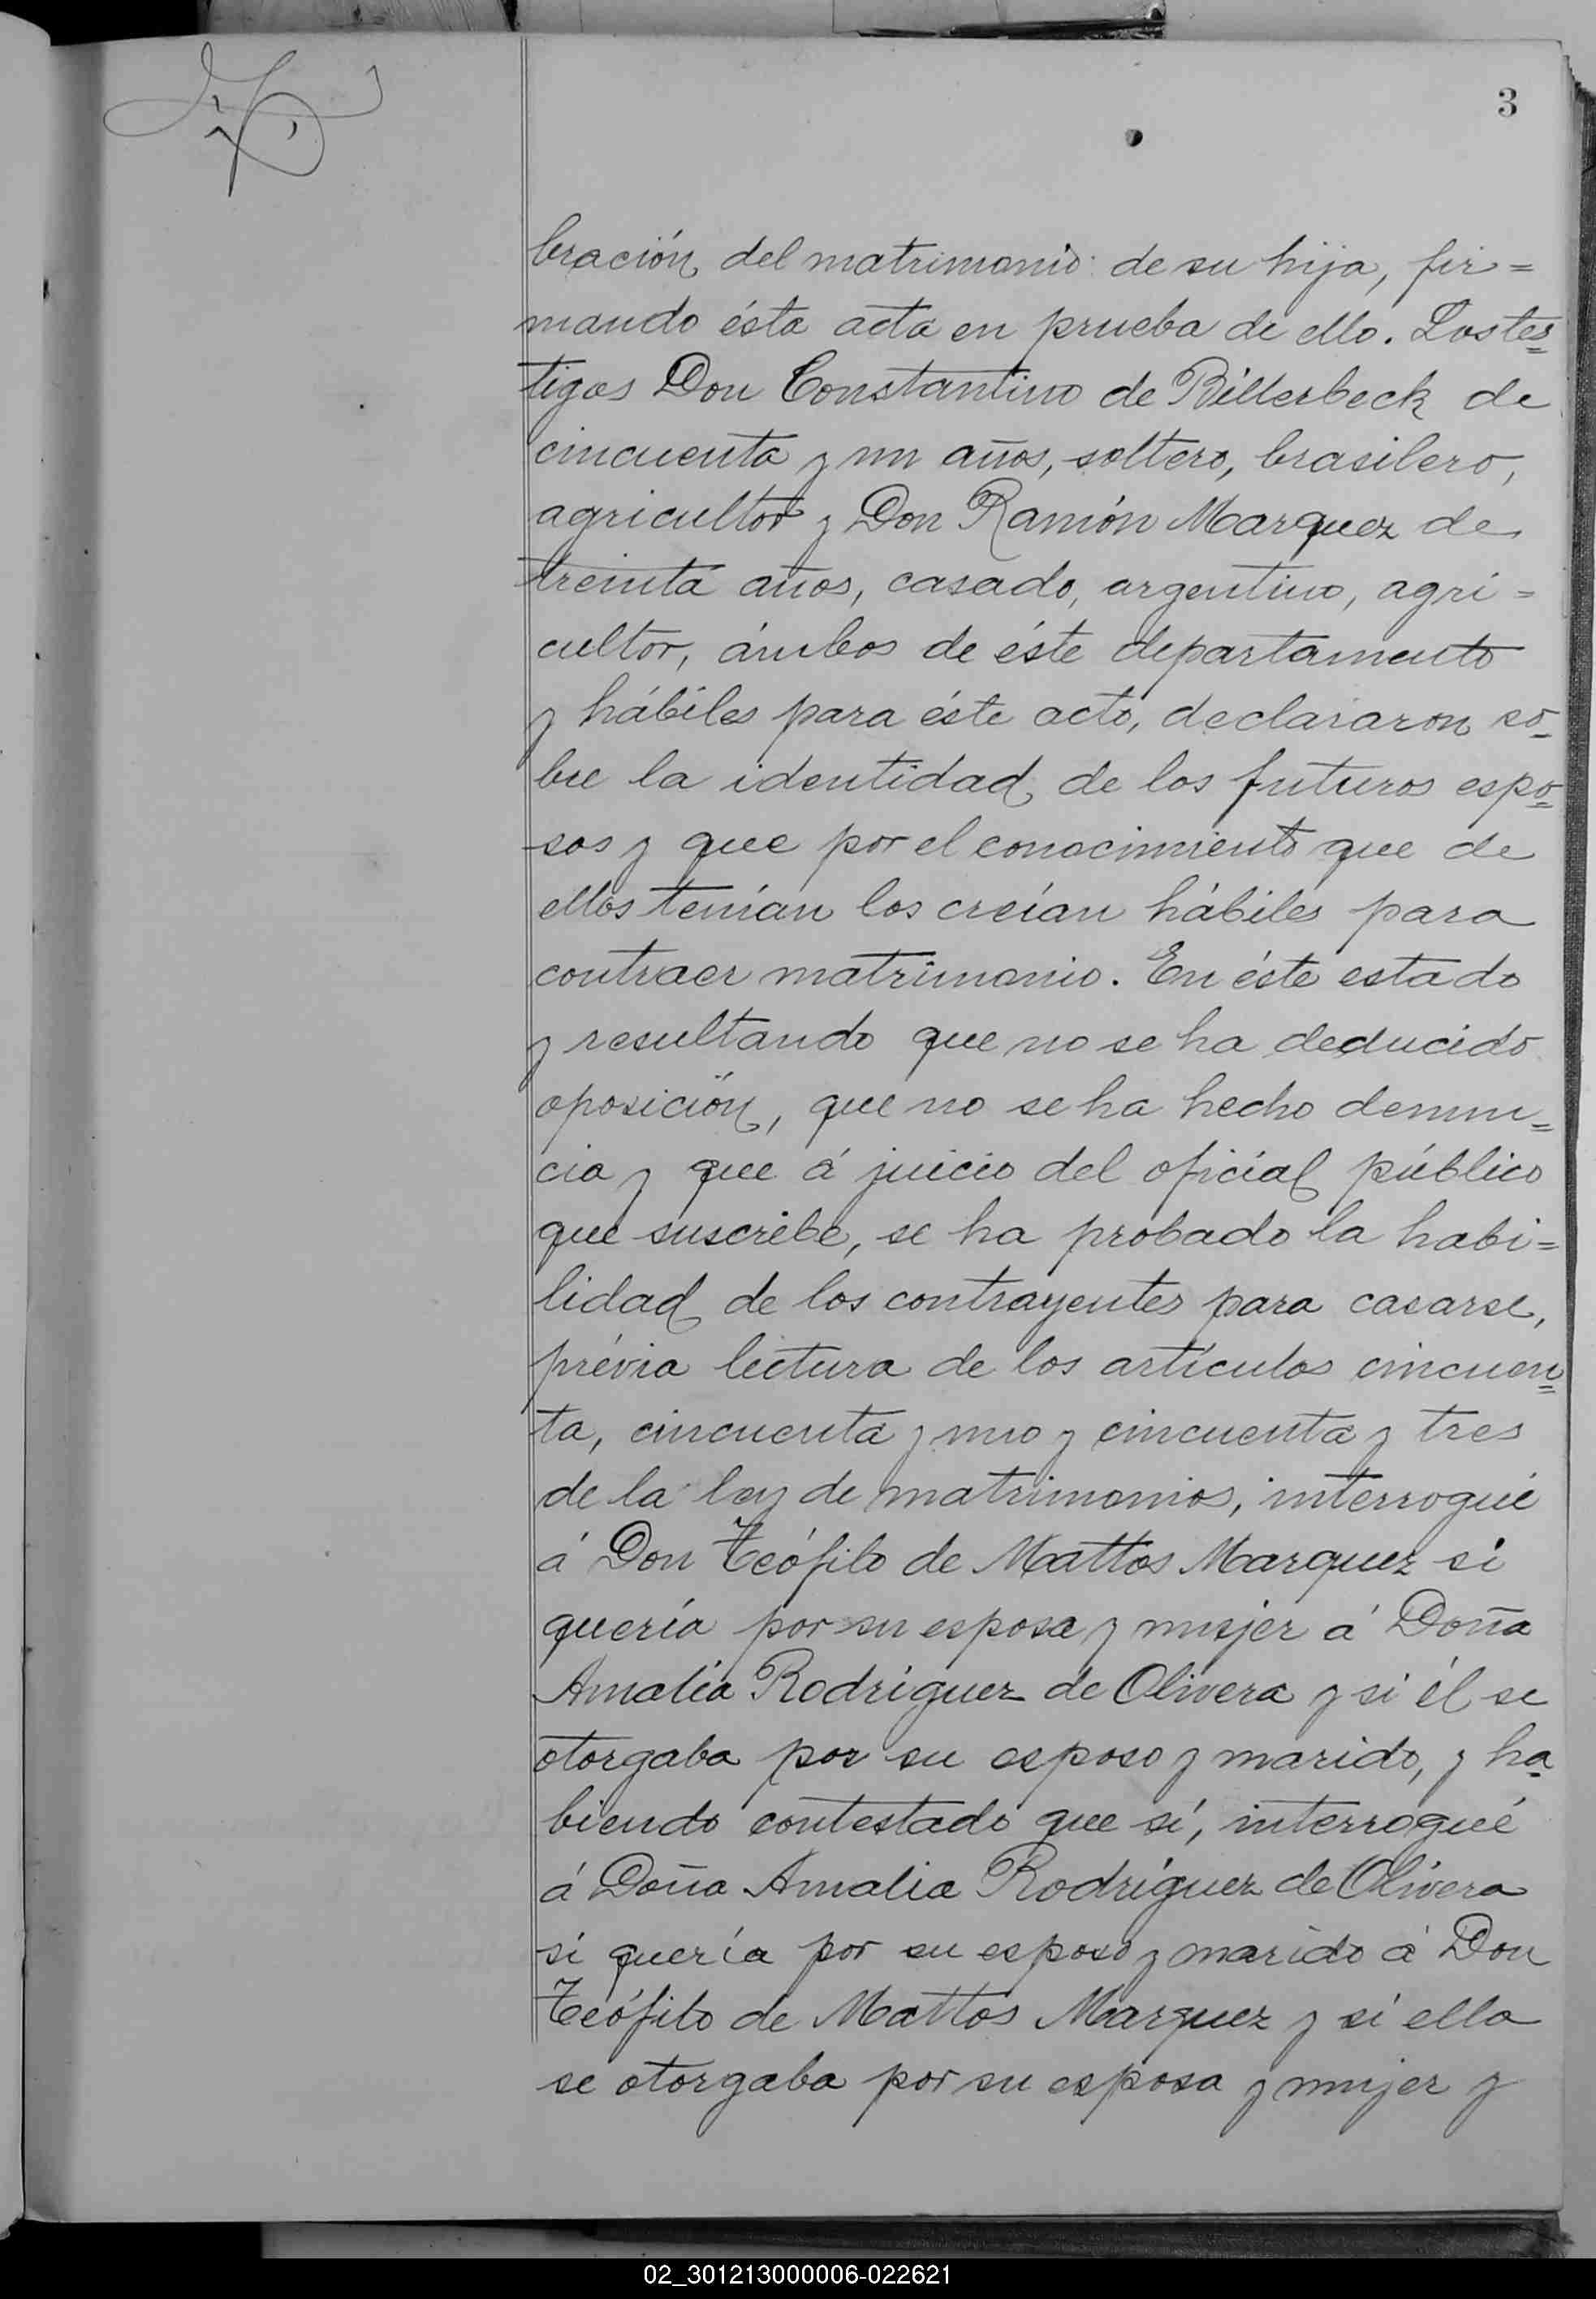 3
bración del matrimonio de su hija, fir=
mando ésta acta en prueba de ello. Los tes=
tigos Don Constantino de Billerbeck de
cincuenta y un años, soltero, brasilero,
agricultor y Don Ramón Marquez de
treinta años, casado, argentino, agri=
cultor, ámbos de éste departamento
y hábiles para éste acto, declararon so-
bre la identidad de los futuros espo=
sos y que por el conocimiento que de
ellos tenían los creían hábiles para
contraer matrimonio. En éste estado
y resultando que no se ha deducido
oposición, que no se ha hecho denun=
cia y que á juicio del oficial público
que suscribe, se ha probado la habi=
lidad de los contrayentes para casarse,
prévia lectura de los artículos cincuen=
ta, cincuenta y uno y cincuenta y tres
de la ley de matrimonios, interrogué
á Don Teófilo de Mattos Marquez si
quería por su esposa y mujer á Doña
Amalia Rodriguez de Olivera y si él se
otorgaba por su esposo y marido, y ha-
biendo contestado que sí, interrogué
á Doña Amalia Rodriguez de Olivera
si quería por su esposo y marido á Don
Teófilo de Mattos Marquez y si ella
se otorgaba por su esposa y mujer y
02_301213000006-022621